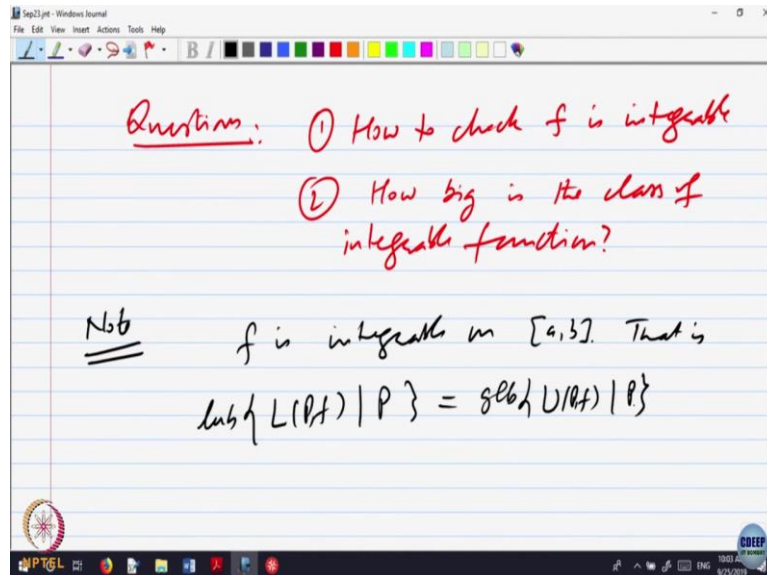 Sep23.jnt - Windows Journal
File Edit View Insert Actions Tools Help
B I
Questions: ① How to check f is integrable
② How big is the class of
integrable function?
Note f is integrable on [a,b]. That is
lub{ L(P,f) | P } = glb{ U(P,f) | P }
NPTEL ENG 10:03 A
9/25/2019
CDEEP
IIT BOMBAY